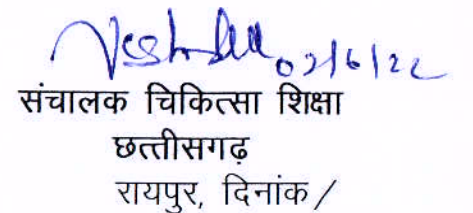 02/6/22
संचालक चिकित्सा शिक्षा
छत्तीसगढ़
रायपुर, दिनांक /